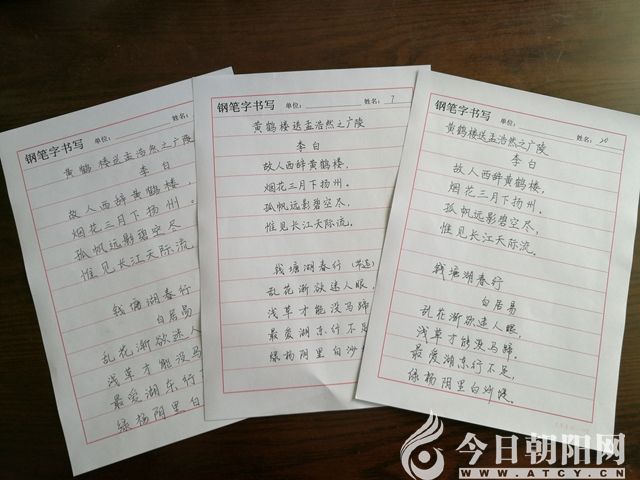 钢笔字书写
黄鹤楼送孟浩然之广陵
李白
故人西辞黄鹤楼,
烟花三月下扬州。
孤帆远影碧空尽
惟见长江天际流。
钱塘湖春行
白居易
乱花渐欲迷人
浅草才能没马
最爱湖东行不
绿杨阴里白
钢笔字书写 单位: 姓名: 7
黄鹤楼送孟浩然之广陵
李白
故人西辞黄鹤楼,
烟花三月下扬州。
孤帆远影碧空尽,
惟见长江天际流。
钱塘湖春行(节选)
乱花渐欲迷人眼,
浅草才能没马蹄
最爱湖东行不足
绿杨阴里白沙
钢笔字书写 单位: 姓名: 20
黄鹤楼送孟浩然之广陵
李白
故人西辞黄鹤楼,
烟花三月下扬州。
孤帆远影碧空尽,
惟见长江天际流。
钱塘湖春行
白居易
乱花渐欲迷人眼,
浅草才能没马蹄,
最爱湖东行不足,
绿杨阴里白沙堤。
今日朝阳网
WWW.ATCY.CN